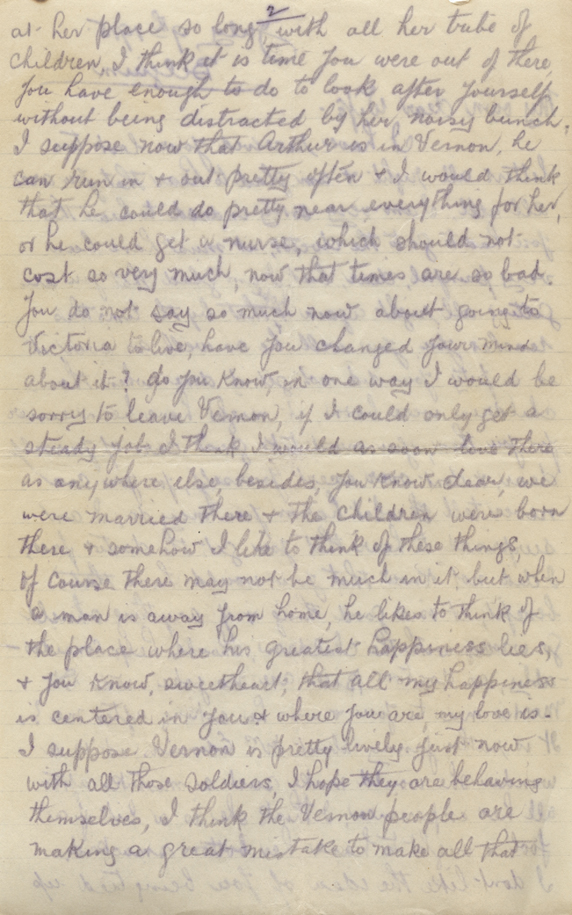 2
at her place so long with all her tribe of
children, I think it is time you were out of there,
you have enough to do to look after yourself
without being distracted by her noisy bunch.
I suppose now that Arthur is in Vernon, he
can run in & out pretty often & I would think
that he could do pretty near everything for her,
or he could get a nurse, which should not
cost so very much, now that times are so bad.
You do not say so much now about going to
Victoria to live, have you changed your mind
about it? do you know, in one way I would be
sorry to leave Vernon, if I could only get a
steady job I think I would as soon live there
as anywhere else, besides, you know dear, we
were married there & the children were born
there & somehow I like to think of these things,
of course there may not be much in it, but when
a man is away from home, he likes to think of
the place where his greatest happiness lies,
& you know, sweetheart, that all my happiness
is centered in you & where you are, my love is.
I suppose Vernon is pretty lively just now
with all those soldiers, I hope they are behaving
themselves, I think the Vernon people are
making a great mistake to make all that